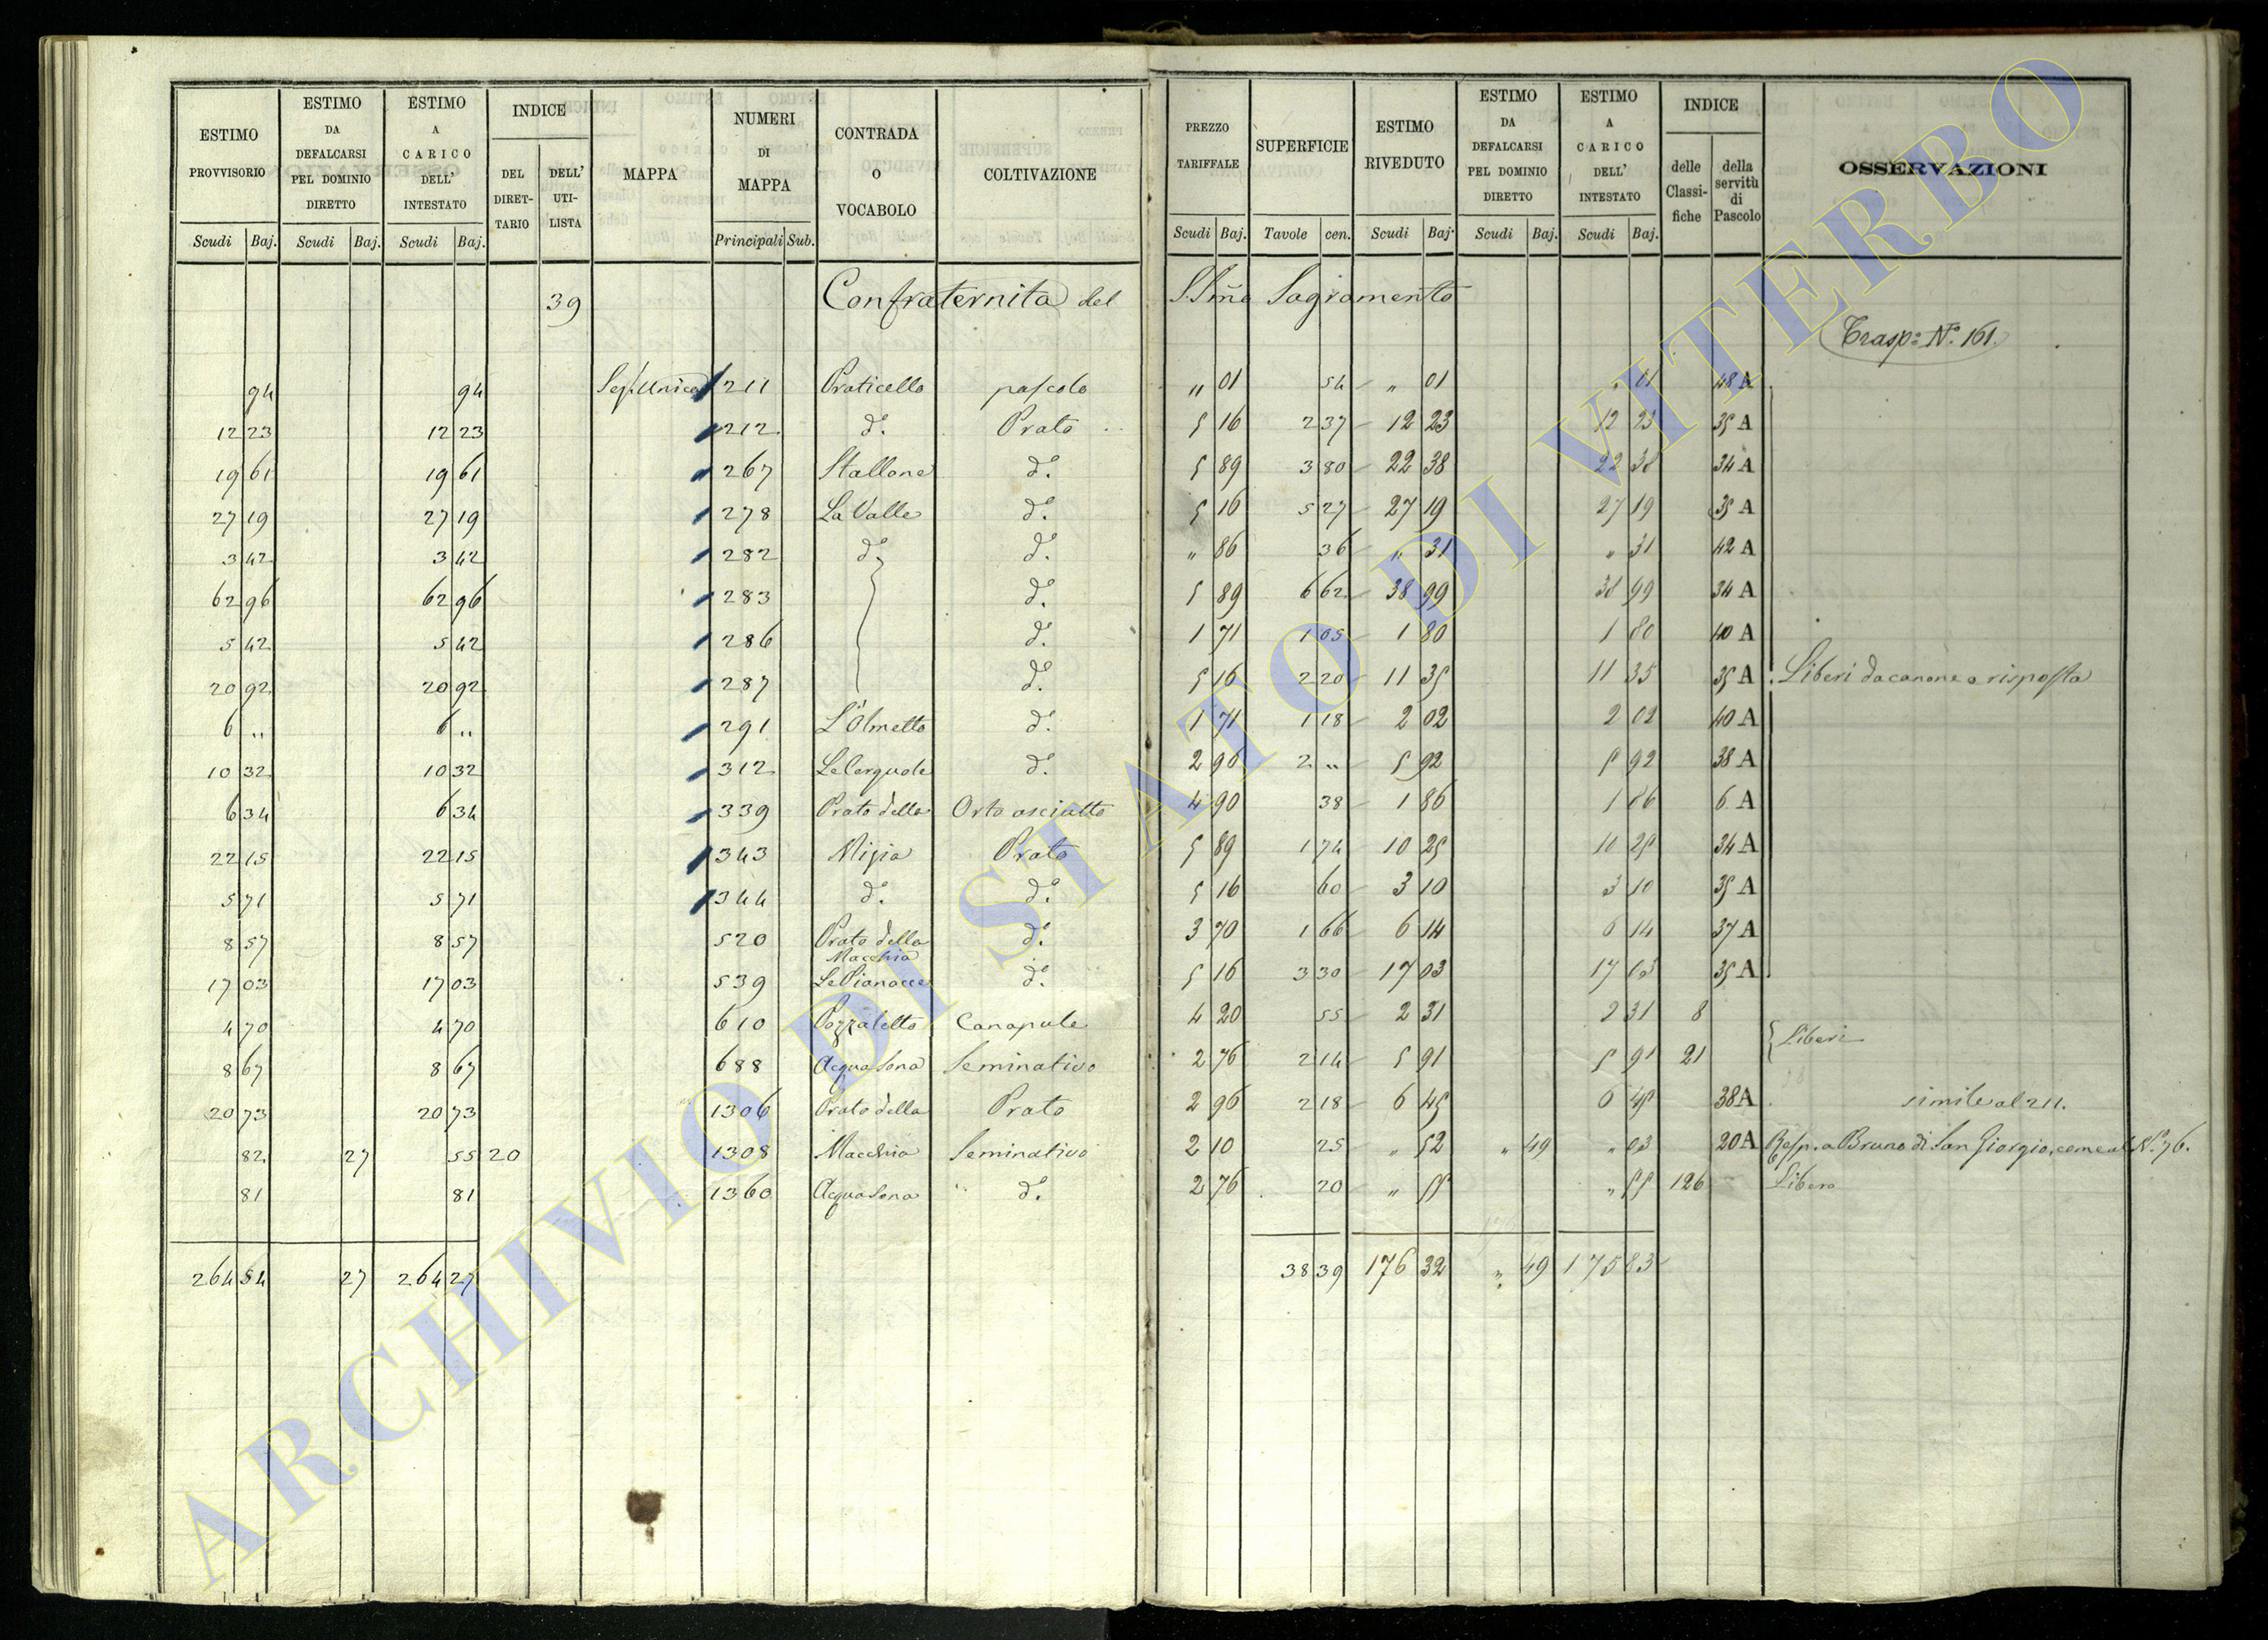 ESTIMO PROVVISORIO | ESTIMO DA DEFALCARSI PEL DOMINIO DIRETTO | ESTIMO A CARICO DELL' INTESTATO | INDICE | MAPPA | NUMERI DI MAPPA | CONTRADA O VOCABOLO | COLTIVAZIONE | PREZZO TARIFFALE | SUPERFICIE | ESTIMO RIVEDUTO | ESTIMO DA DEFALCARSI PEL DOMINIO DIRETTO | ESTIMO A CARICO DELL' INTESTATO | INDICE | OSSERVAZIONI
DEL DIRET-TARIO | DELL' UTI-LISTA | delle Classi-fiche | della servitù di Pascolo
Scudi | Baj. | Scudi | Baj. | Scudi | Baj. | Principali | Sub. | Scudi | Baj. | Tavole | cen. | Scudi | Baj. | Scudi | Baj. | Scudi | Baj.
39 Confraternita del S.Smo Sagramento
Trasp: N.º 161.
94 | 94 | Sez. Unica | 211 | Praticello | pascolo | „ 01 | 54 | „ 01 | „ 01 | 48 A
12 23 | 12 23 | 212 | dº. | Prato | 5 16 | 2 37 | 12 23 | 12 23 | 35 A
19 61 | 19 61 | 267 | Stallone | dº. | 5 89 | 3 80 | 22 38 | 22 38 | 34 A
27 19 | 27 19 | 278 | La Valle | dº. | 5 16 | 5 27 | 27 19 | 27 19 | 35 A
3 42 | 3 42 | 282 | dº | dº. | „ 86 | 36 | „ 31 | „ 31 | 42 A
62 96 | 62 96 | 283 | dº. | 5 89 | 6 62 | 38 99 | 38 99 | 34 A
5 42 | 5 42 | 286 | dº. | 1 71 | 1 05 | 1 80 | 1 80 | 40 A
20 92 | 20 92 | 287 | dº. | 5 16 | 2 20 | 11 35 | 11 35 | 35 A | Liberi da canone o risposta
6 „ | 6 „ | 291 | L'Olmetto | dº. | 1 71 | 1 18 | 2 02 | 2 02 | 40 A
10 32 | 10 32 | 312 | Le Cerquole | dº. | 2 96 | 2 „ | 5 92 | 5 92 | 38 A
6 34 | 6 34 | 339 | Prato della | Orto asciutto | 4 90 | 38 | 1 86 | 1 86 | 6 A
22 15 | 22 15 | 343 | Prato | 5 89 | 1 74 | 10 25 | 10 25 | 34 A
5 71 | 5 71 | 344 | dº. | dº. | 5 16 | 60 | 3 10 | 3 10 | 35 A
8 57 | 8 57 | 520 | Prato della Macchia | dº. | 3 70 | 1 66 | 6 14 | 6 14 | 37 A
17 03 | 17 03 | 539 | Le Pianacce | dº. | 5 16 | 3 30 | 17 03 | 17 03 | 35 A
4 70 | 4 70 | 610 | Pozzaletto | Canapule | 4 20 | 55 | 2 31 | 2 31 | 8
Liberi
8 67 | 8 67 | 688 | Acqua Sona | Seminativo | 2 76 | 2 14 | 5 91 | 5 91 | 21
20 73 | 20 73 | 1306 | Prato della | Prato | 2 96 | 2 18 | 6 45 | 6 45 | 38 A | simile al 211.
82 | 27 | 55 | 20 | 1308 | Macchia | Seminativo | 2 10 | 25 | „ 52 | „ 49 | „ 03 | 20 A | Resp. a Bruno di San Giorgio, come al N.º 76.
81 | 81 | 1360 | Acqua Sona | dº. | 2 76 | 20 | „ 55 | „ 55 | 126 | Libero
264 54 | 27 | 264 27 | 38 39 | 176 32 | „ 49 | 175 83
ARCHIVIO DI STATO DI VITERBO